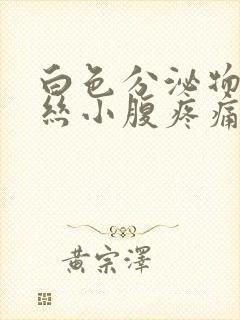 白色分泌物
丝小腹疼痛
黄宗泽